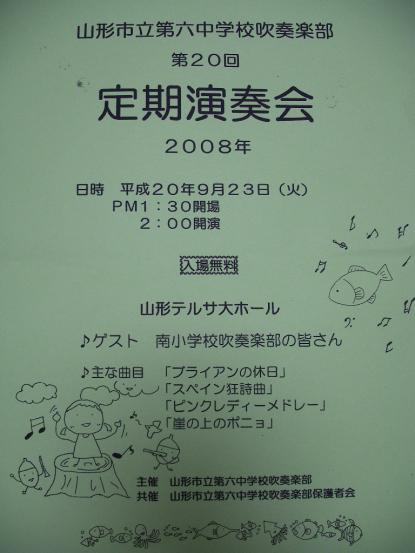 山形市立第六中学校吹奏楽部
第20回
定期演奏会
2008年
日時　平成20年9月23日（火）
PM1：30開場
2：00開演
入場無料
山形テルサ大ホール
♪ゲスト　南小学校吹奏楽部の皆さん
♪主な曲目　「ブライアンの休日」
「スペイン狂詩曲」
「ピンクレディーメドレー」
「崖の上のポニョ」
主催　山形市立第六中学校吹奏楽部
共催　山形市立第六中学校吹奏楽部保護者会